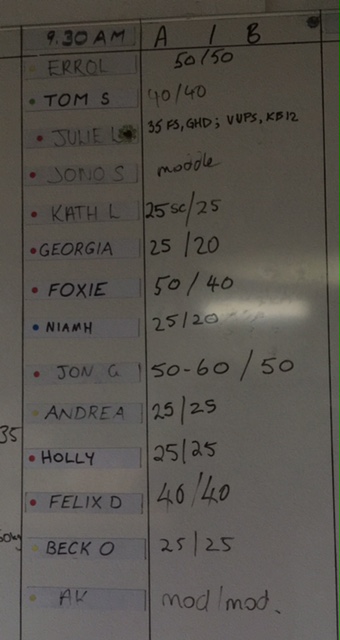 9.30 AM A / B
ERROL 50/50
TOM S 40/40
JULIE L 35 FS, GHD; VUPS, KB12
JONO S moddle
KATH L 25sc/25
GEORGIA 25/20
FOXIE 50/40
NIAMH 25/20
JON G 50-60/50
ANDREA 25/25
35
HOLLY 25/25
FELIX D 40/40
BECK O 25/25
AK mod/mod.